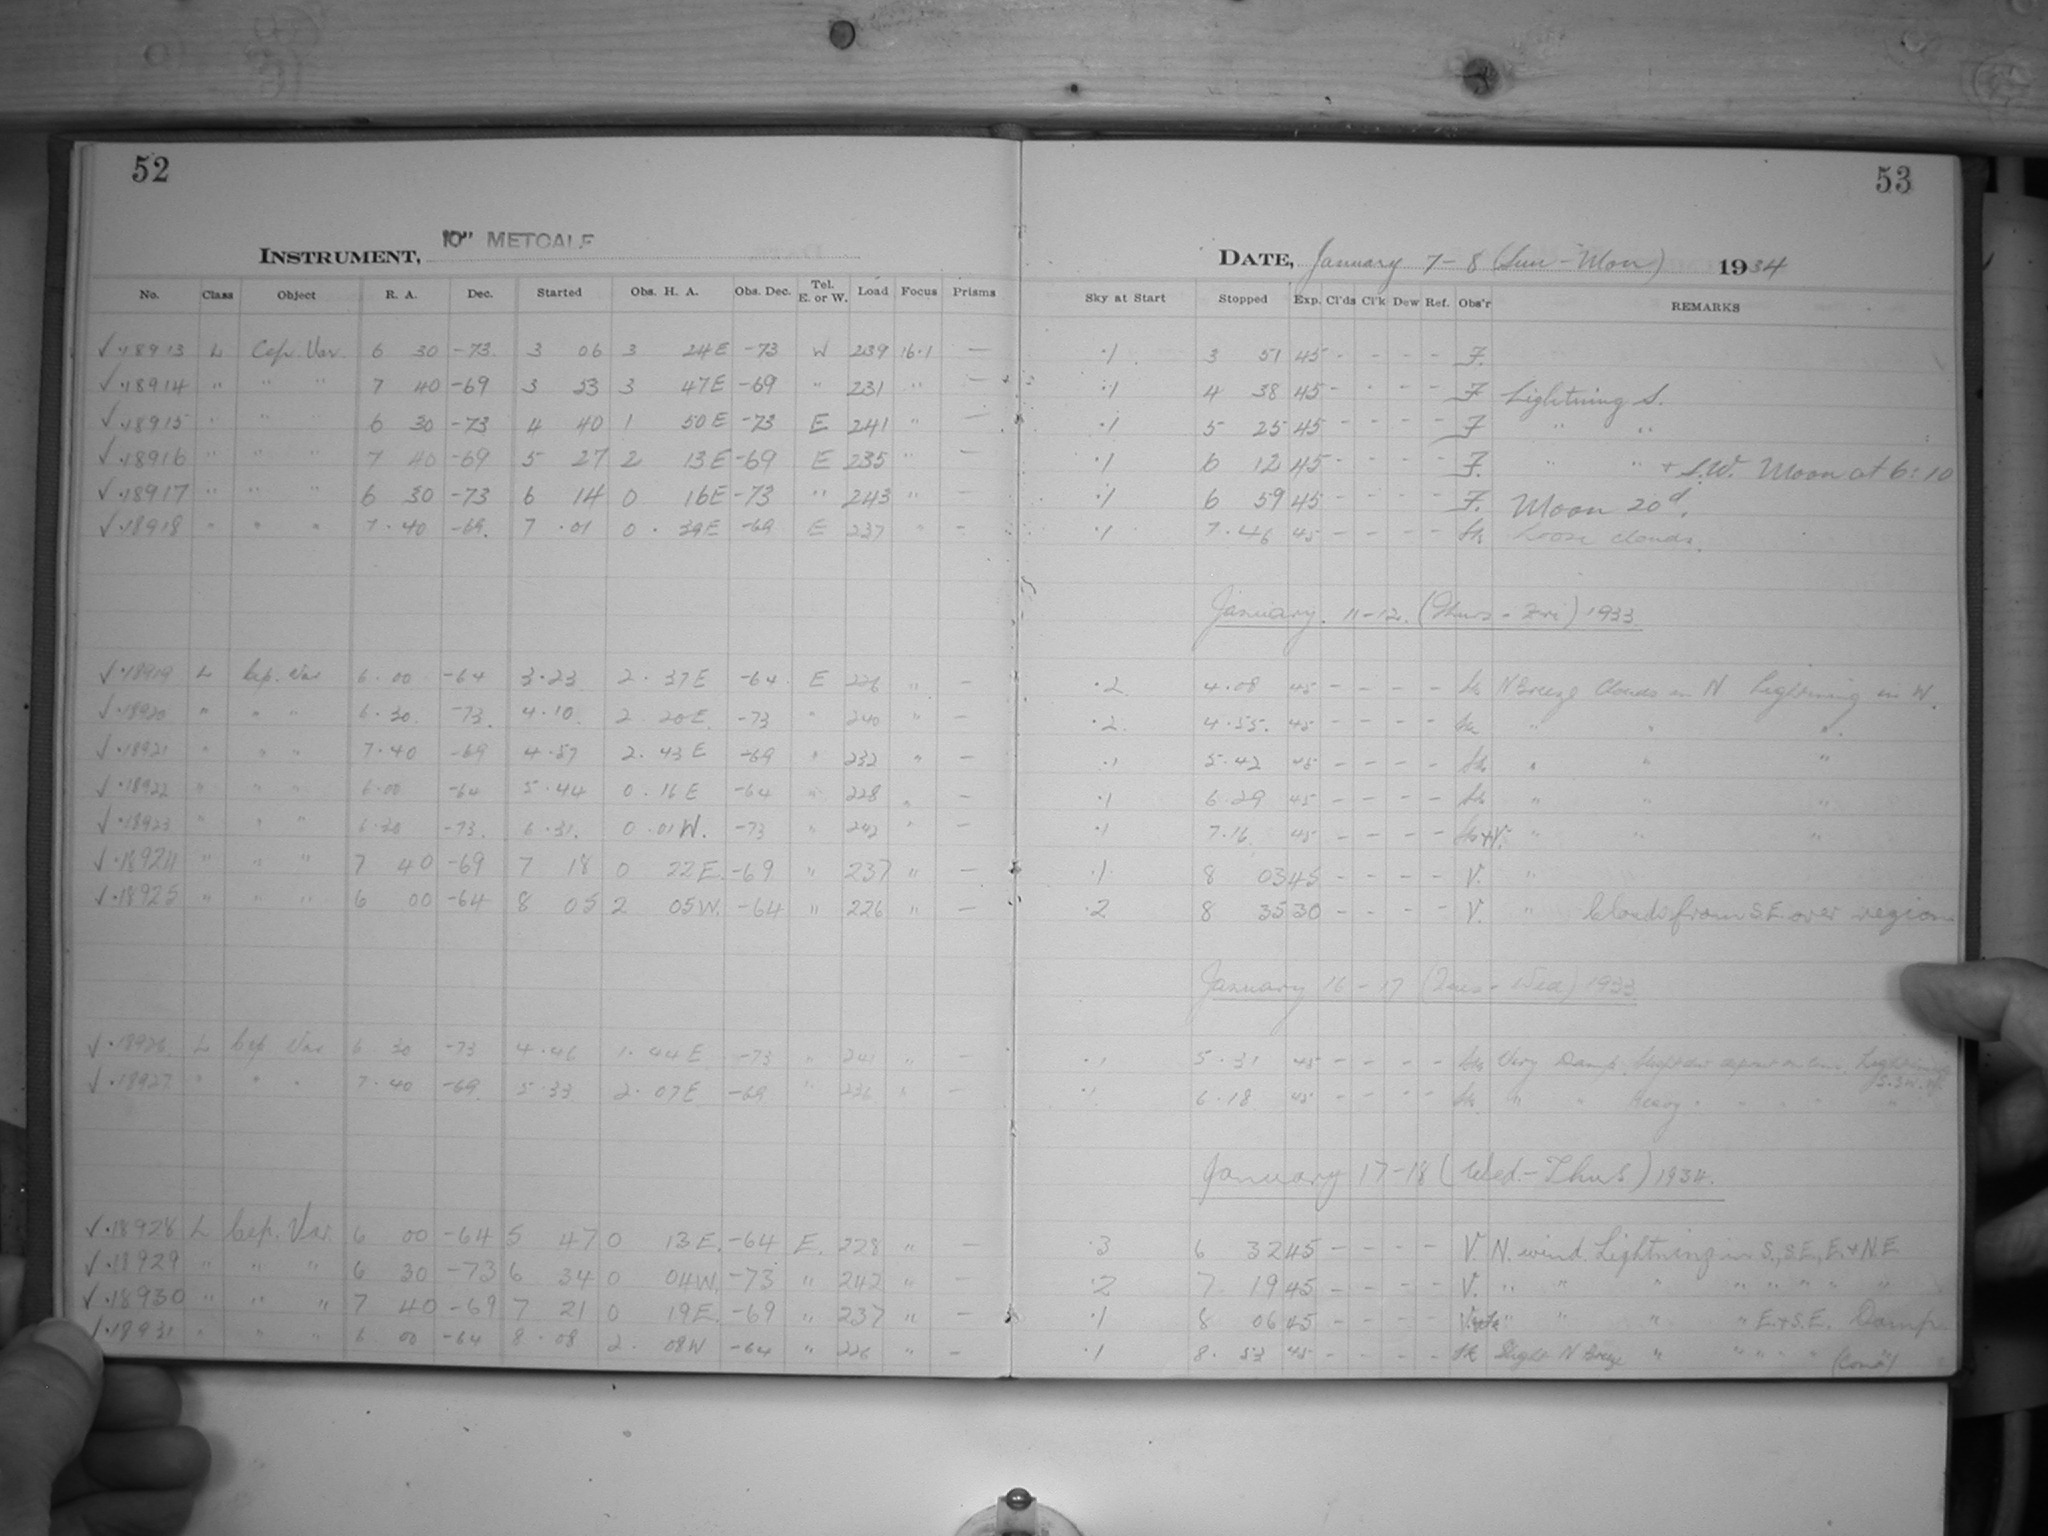 52
53
INSTRUMENT, 10" METCALF
DATE, January 7-8 (Sun-Mon) 1934
No. Class Object R. A. Dec. Started Obs. H. A. Obs. Dec. Tel. E. or W. Load Focus Prisms Sky at Start Stopped Exp. Cl'ds Cl'k Dew Ref. Obs'r REMARKS
√ 18913 L Cep. Var. 6 30 -73 3 06 3 24E -73 W 239 16.1 — .1 3 51 45 - - - - F.
√ 18914 " " " 7 40 -69 3 53 3 47E -69 " 231 " — .1 4 38 45 - - - - F Lightning S.
√ 18915 " " " 6 30 -73 4 40 1 50E -73 E 241 " — .1 5 25 45 - - - - F " "
√ 18916 " " " 7 40 -69 5 27 2 13E -69 E 235 " — .1 6 12 45 - - - - F. " " + S.W. Moon at 6:10
√ 18917 " " " 6 30 -73 6 14 0 16E -73 " 243 " — .1 6 59 45 - - - - F. Moon 20d.
√ 18918 " " " 7.40 -69. 7.01 0.39E -69 E 237 " — .1 7.46 45 - - - - Loose clouds.
January. 11-12. (Thurs - Fri) 1933
√ 18919 L Cep. Var 6.00 -64 3.23 2.37E -64 E 226 " — .2 4.08 45 - - - - N Breeze Clouds in N Lightning in W.
√ 18920 " " " 6.30. -73. 4.10 2.20E -73 " 240 " — .2 4.55. 45 - - - - " " "
√ 18921 " " " 7.40 -69 4.57 2.43E -69 " 232 " — .1 5.42 45 - - - - " " "
√ 18922 " " " 6.00 -64 5.44 0.16E -64 " 228 " — .1 6.29 45 - - - - " " "
√ 18923 " " " 6.30 -73. 6.31. 0.01W. -73 " 242 " — .1 7.16 45 - - - - " " "
√ 18924 " " " 7 40 -69 7 18 0 22E. -69 " 237 " — .1 8 03 45 - - - - V. "
√ 18925 " " " 6 00 -64 8 05 2 05W. -64 " 226 " — .2 8 35 30 - - - - V. " Clouds from S.E. over region
January 16-17 (Tues - Wed) 1933
√ 18926 L Cep Var 6 30 -73 4.46 1.44E -73 " 241 " — .1 5.31 45 - - - - Very Damp. Lightning
√ 18927 " " " 7.40 -69. 5.33 2.07E -69 " 236 " — 6.18 45 - - - - " " Heavy
January 17-18 (Wed.-Thurs) 1934.
√ 18928 L Cep. Var. 6 00 -64 5 47 0 13E. -64 E. 228 " — .3 6 32 45 - - - - V. N. wind. Lightning in S., S.E., E. + N.E
√ 18929 " " " 6 30 -73 6 34 0 04W. -73 " 242 " — .2 7 19 45 - - - - V. " " " " " " " "
√ 18930 " " " 7 40 -69 7 21 0 19E. -69 " 237 " — .1 8 06 45 - - - - " " " " E. + S.E. Damp
√ 18931 " " " 6 00 -64 8.08 2. 08W -64 " 226 " — .1 8. 53 45 - - - - Slight N Breeze " " " "